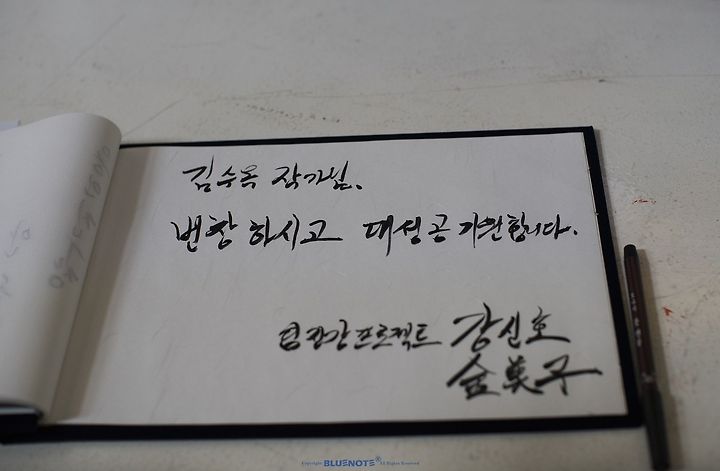 김수옥 작가님.
번창하시고 대성공 기원합니다.
프로젝트 강신호
金美子
Copyright BLUENOTE® All Rights Reserved